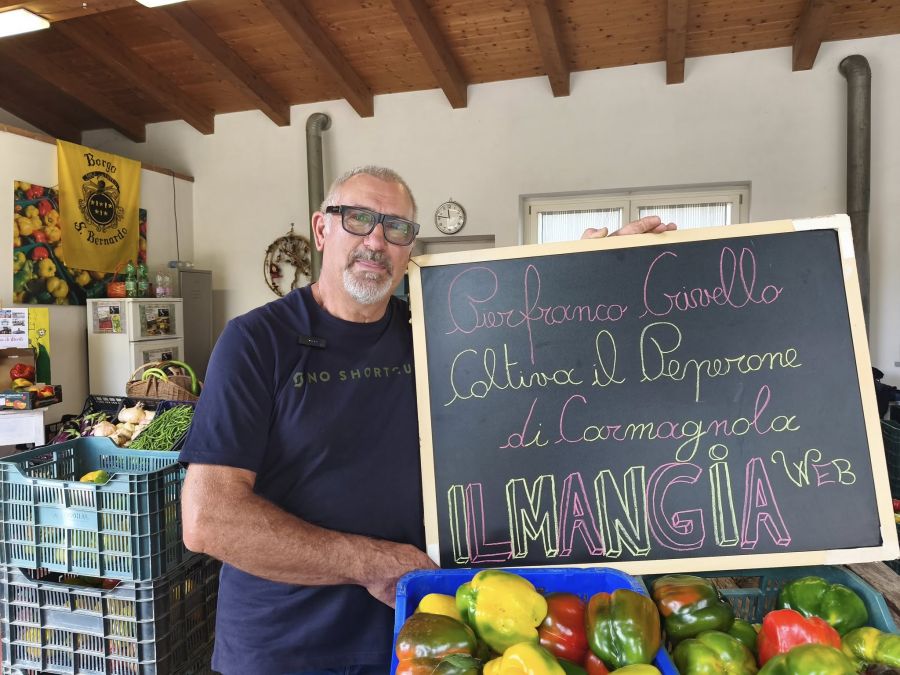 Borgo
S. Bernardo
NO SHORTCU
Pierfranco Crivello
Coltiva il Peperone
di Carmagnola
IL MANGIA WEB